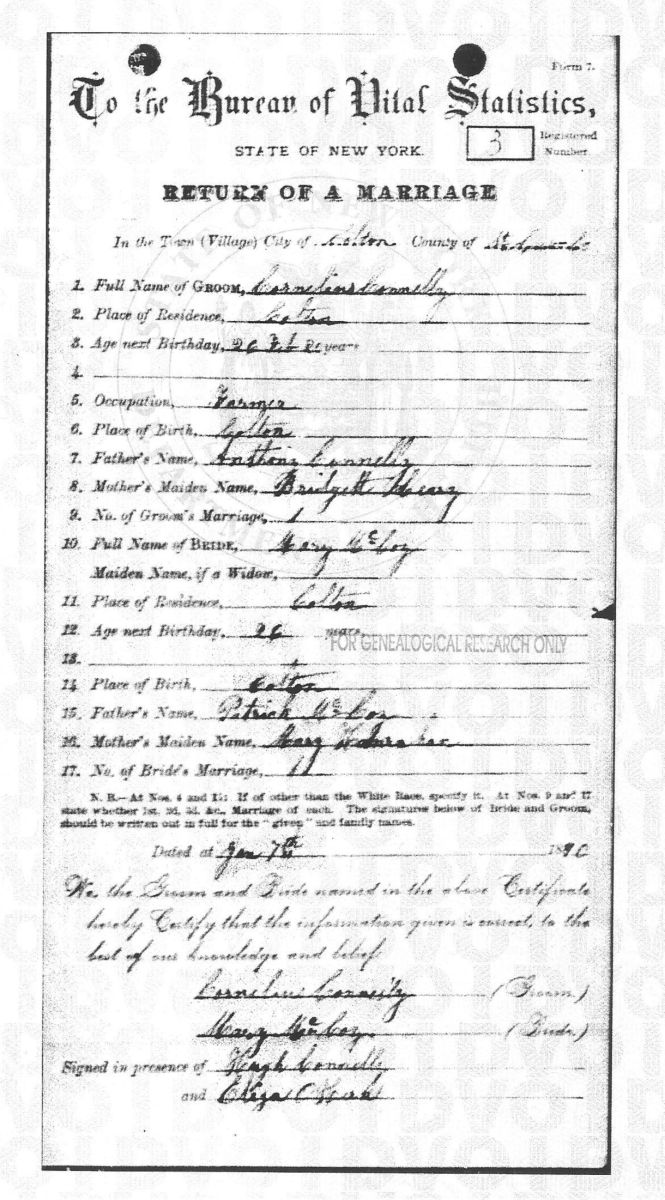 Form 7.
To the Bureau of Vital Statistics,
STATE OF NEW YORK.
3
Registered
Number
RETURN OF A MARRIAGE
In the Town (Village) City of Colton County of
1. Full Name of GROOM, Cornelius Connelly
2. Place of Residence, Colton
3. Age next Birthday, 26 years
4.
5. Occupation, Farmer
6. Place of Birth, Colton
7. Father's Name, Anthony Connelly
8. Mother's Maiden Name, Bridgett
9. No. of Groom's Marriage, 1
10. Full Name of BRIDE, Mary McCoy
Maiden Name, if a Widow,
11. Place of Residence, Colton
12. Age next Birthday, 26 years
FOR GENEALOGICAL RESEARCH ONLY
13.
14. Place of Birth, Colton
15. Father's Name, Patrick McCoy
16. Mother's Maiden Name, Mary
17. No. of Bride's Marriage,
N. B.—At Nos. 4 and 13: If of other than the White Race, specify it. At Nos. 9 and 17
state whether 1st, 2d, 3d, &c., Marriage of each. The signatures below of Bride and Groom,
should be written out in full for the "given" and family names.
Dated at Jan 7th 1890
We the Groom and Bride named in the above Certificate
hereby Certify that the information given is correct, to the
best of our knowledge and belief.
Cornelius Connelly (Groom)
Mary McCoy (Bride)
Signed in presence of Hugh Connelly
and Eliza